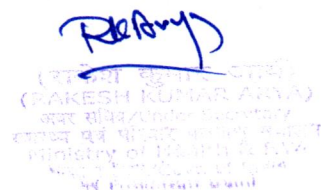 RKArya
(राकेश कुमार आर्या)
(RAKESH KUMAR ARYA)
अवर सचिव/Under Secretary
स्वास्थ्य एवं परिवार कल्याण मंत्रालय
Ministry of Health & F.W.